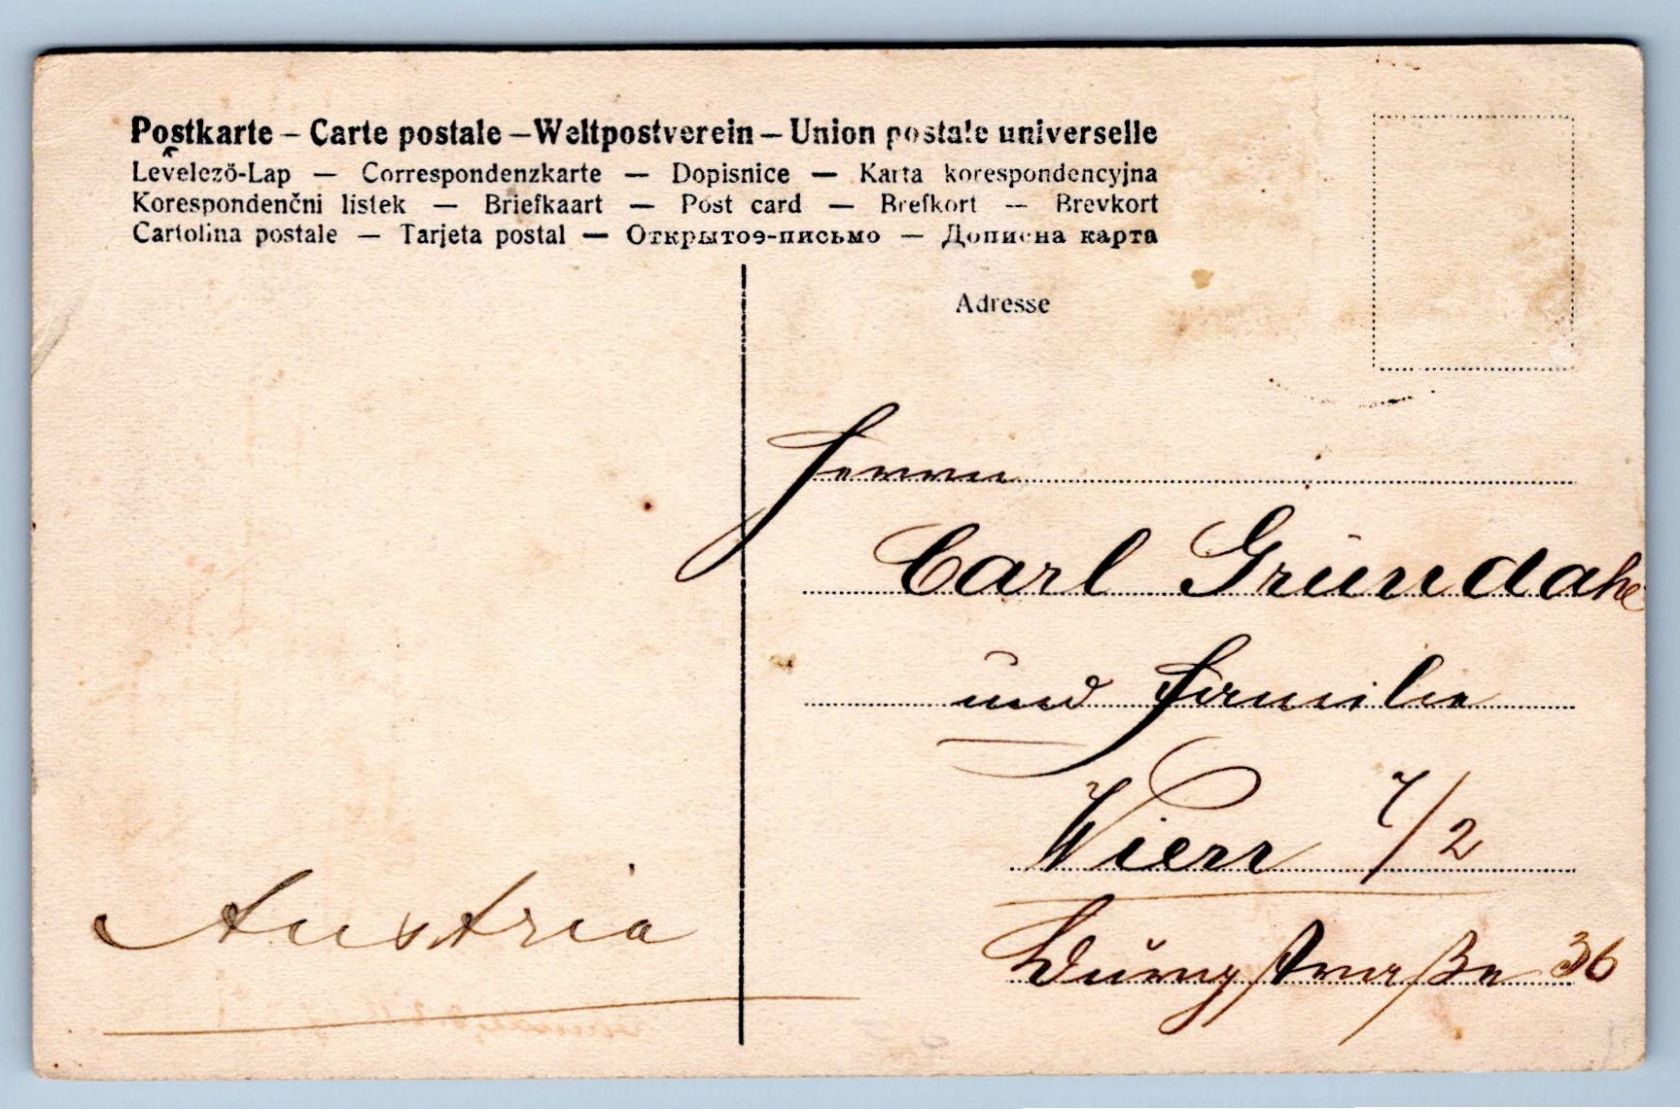 Postkarte – Carte postale – Weltpostverein – Union postale universelle
Levelező-Lap — Correspondenzkarte — Dopisnice — Karta korespondencyjna
Korespondenčni listek — Briefkaart — Post card — Brefkort — Brevkort
Cartolina postale — Tarjeta postal — Открытое-письмо — Дописна карта
Adresse
Herrn
Carl
und Familie
Wien 7/2
Burgstraße 36
Austria